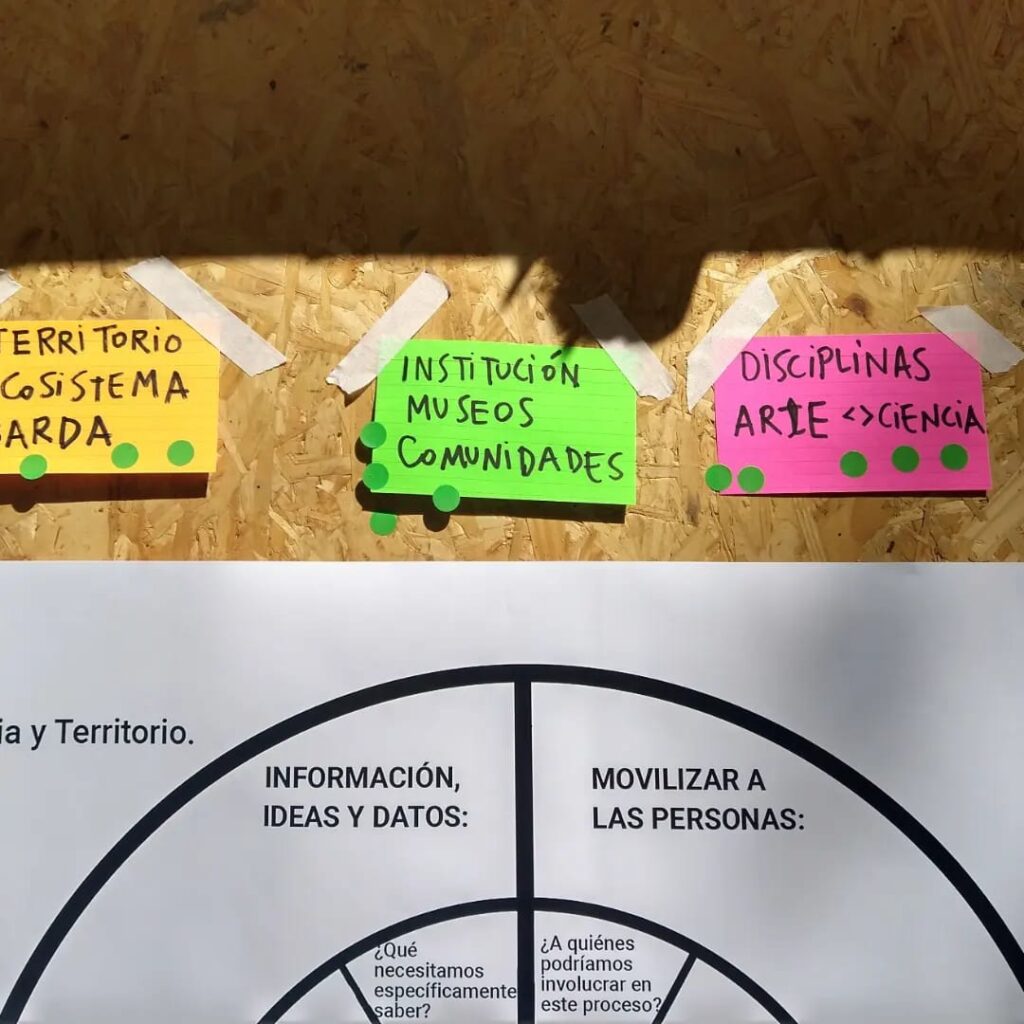 TERRITORIO
COSISTEMA
BARDA
INSTITUCIÓN
MUSEOS
COMUNIDADES
DISCIPLINAS
ARTE <> CIENCIA
ia y Territorio.
INFORMACIÓN,
IDEAS Y DATOS:
MOVILIZAR A
LAS PERSONAS:
¿Qué
necesitamos
específicamente
saber?
¿A quiénes
podríamos
involucrar en
este proceso?